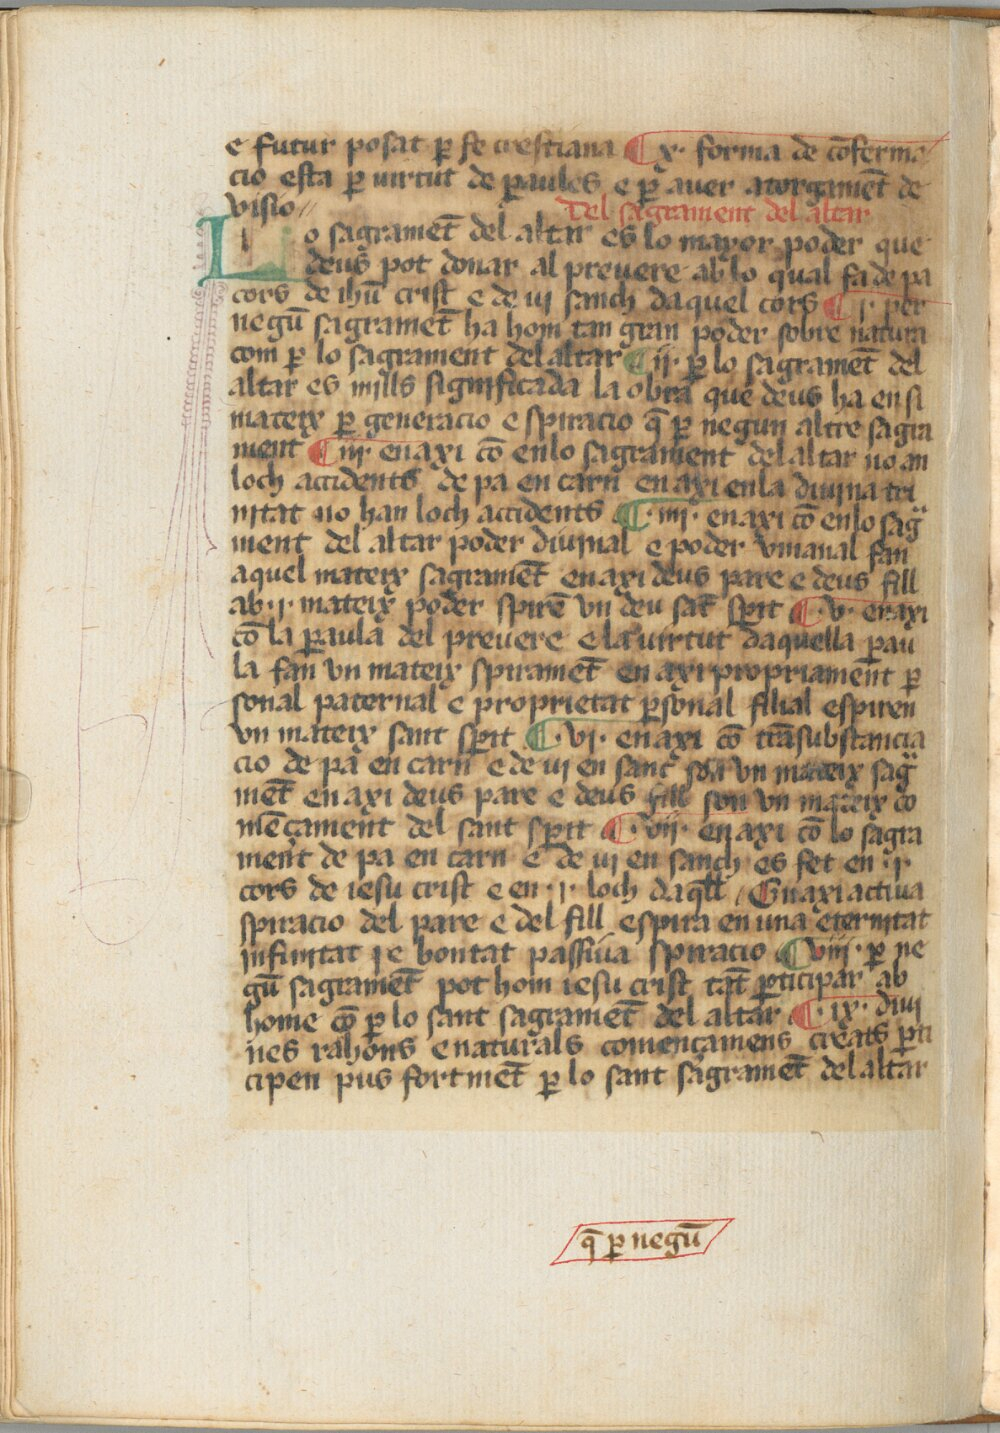 e futur posat p̱ fe crestiana ¶ x· forma de cōferma
cio esta p̱ uirtut de p̱aules e p̱ auer atorgamēt de
visio //
Del sagrament del altar
Lo sagramēt del altar es lo mayor poder que
deus pot donar al preuere ab lo qual fa de pa
cors de ihū crist e de ui sanch daquel cors ¶ ·i· per
negū sagramēt ha hom tan gran poder sobre natura
com p̱ lo sagrament del altar ¶ ii· p̱ lo sagramēt del
altar es mills significada la obra que deus ha en si
mateix p̱ generacio e spiracio q̄ p̱ negun altre sagra
ment ¶ iii· en axi cō en lo sagrament del altar no an
loch accidents de pa en carn en axi en la diuina tri
nitat no han loch accidents ¶ ·iiii· en axi cō en lo sag̃
ment del altar poder diuinal e poder vmanal fan
aquel mateix sagramēt en axi deus pare e deus fill
ab ·i· mateix poder spirē vn deu sāt sp̄it ¶ ·v· en axi
cō la p̱aula del preuere e la uirtut daquella p̱au
la fan vn mateix spiramēt en axi propriament p̱
sonal paternal e proprietat p̱sonal filial espiren
vn mateix sant sp̄it ¶ ·vi· en axi cō trāsubstancia
cio de pa en carn e de ui en sanc son vn mateix sag̃
mēt en axi deus pare e deus fill son vn mateix co
mēçament del sant sp̄it ¶ ·vii· en axi cō lo sagra
ment de pa en carn e de ui en sanch es fet en ·i·
cors de iesu crist e en ·i· loch daq̄ll / En axi actiua
spiracio del pare e del fill espira en una eternitat
infinitat i e bontat passiua spiracio ¶ viii· p̱ ne
gū sagramēt pot hom iesu crist tāt p̱ticipar ab
home cō p̱ lo sant sagramēt del altar ¶ ·ix· diui
nes rahons e naturals comencamens creats p̱ti
cipen pus fortmēt p̱ lo sant sagramēt del altar
q̄ p̱ negū